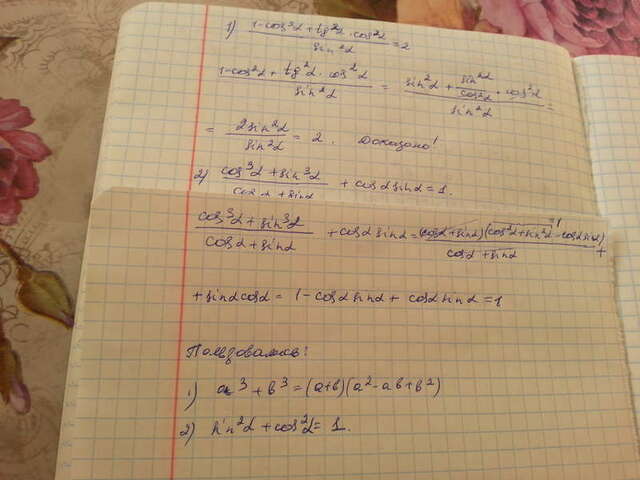 1) (1-cos²α+tg²α·cos²α)/sin²α = 2
(1-cos²α+tg²α·cos²α)/sin²α = (sin²α+sin²α/cos²α·cos²α)/sin²α =
= 2sin²α/sin²α = 2. Доказано!
2) (cos³α+sin³α)/(cosα+sinα) + cosα sinα = 1.
(cos³α+sin³α)/(cosα+sinα) + cosα sinα = (cosα+sinα)(cos²α+sin²α-cosα sinα)/(cosα+sinα) + =1
+ sinα cosα = 1 - cosα sinα + cosα sinα = 1
Пользовались:
1) a³+b³=(a+b)(a²-ab+b²)
2) sin²α+cos²α=1.